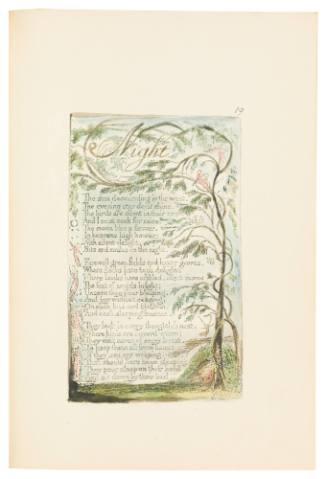 Night
The sun descending in the west
The evening star does shine
The birds are silent in their nest
And I must seek for mine
The moon like a flower
In heavens high bower
With silent delight
Sits and smiles on the night
Farewell green fields and happy groves
Where flocks have took delight
Where lambs have nibbled, silent moves
The feet of angels bright
Unseen they pour blessing
And joy without ceasing
On each bud and blossom
And each sleeping bosom
They look in every thoughtless nest
Where birds are coverd warm
They visit caves of every beast
To keep them all from harm
If they see any weeping
That should have been sleeping
They pour sleep on their head
And sit down by their bed